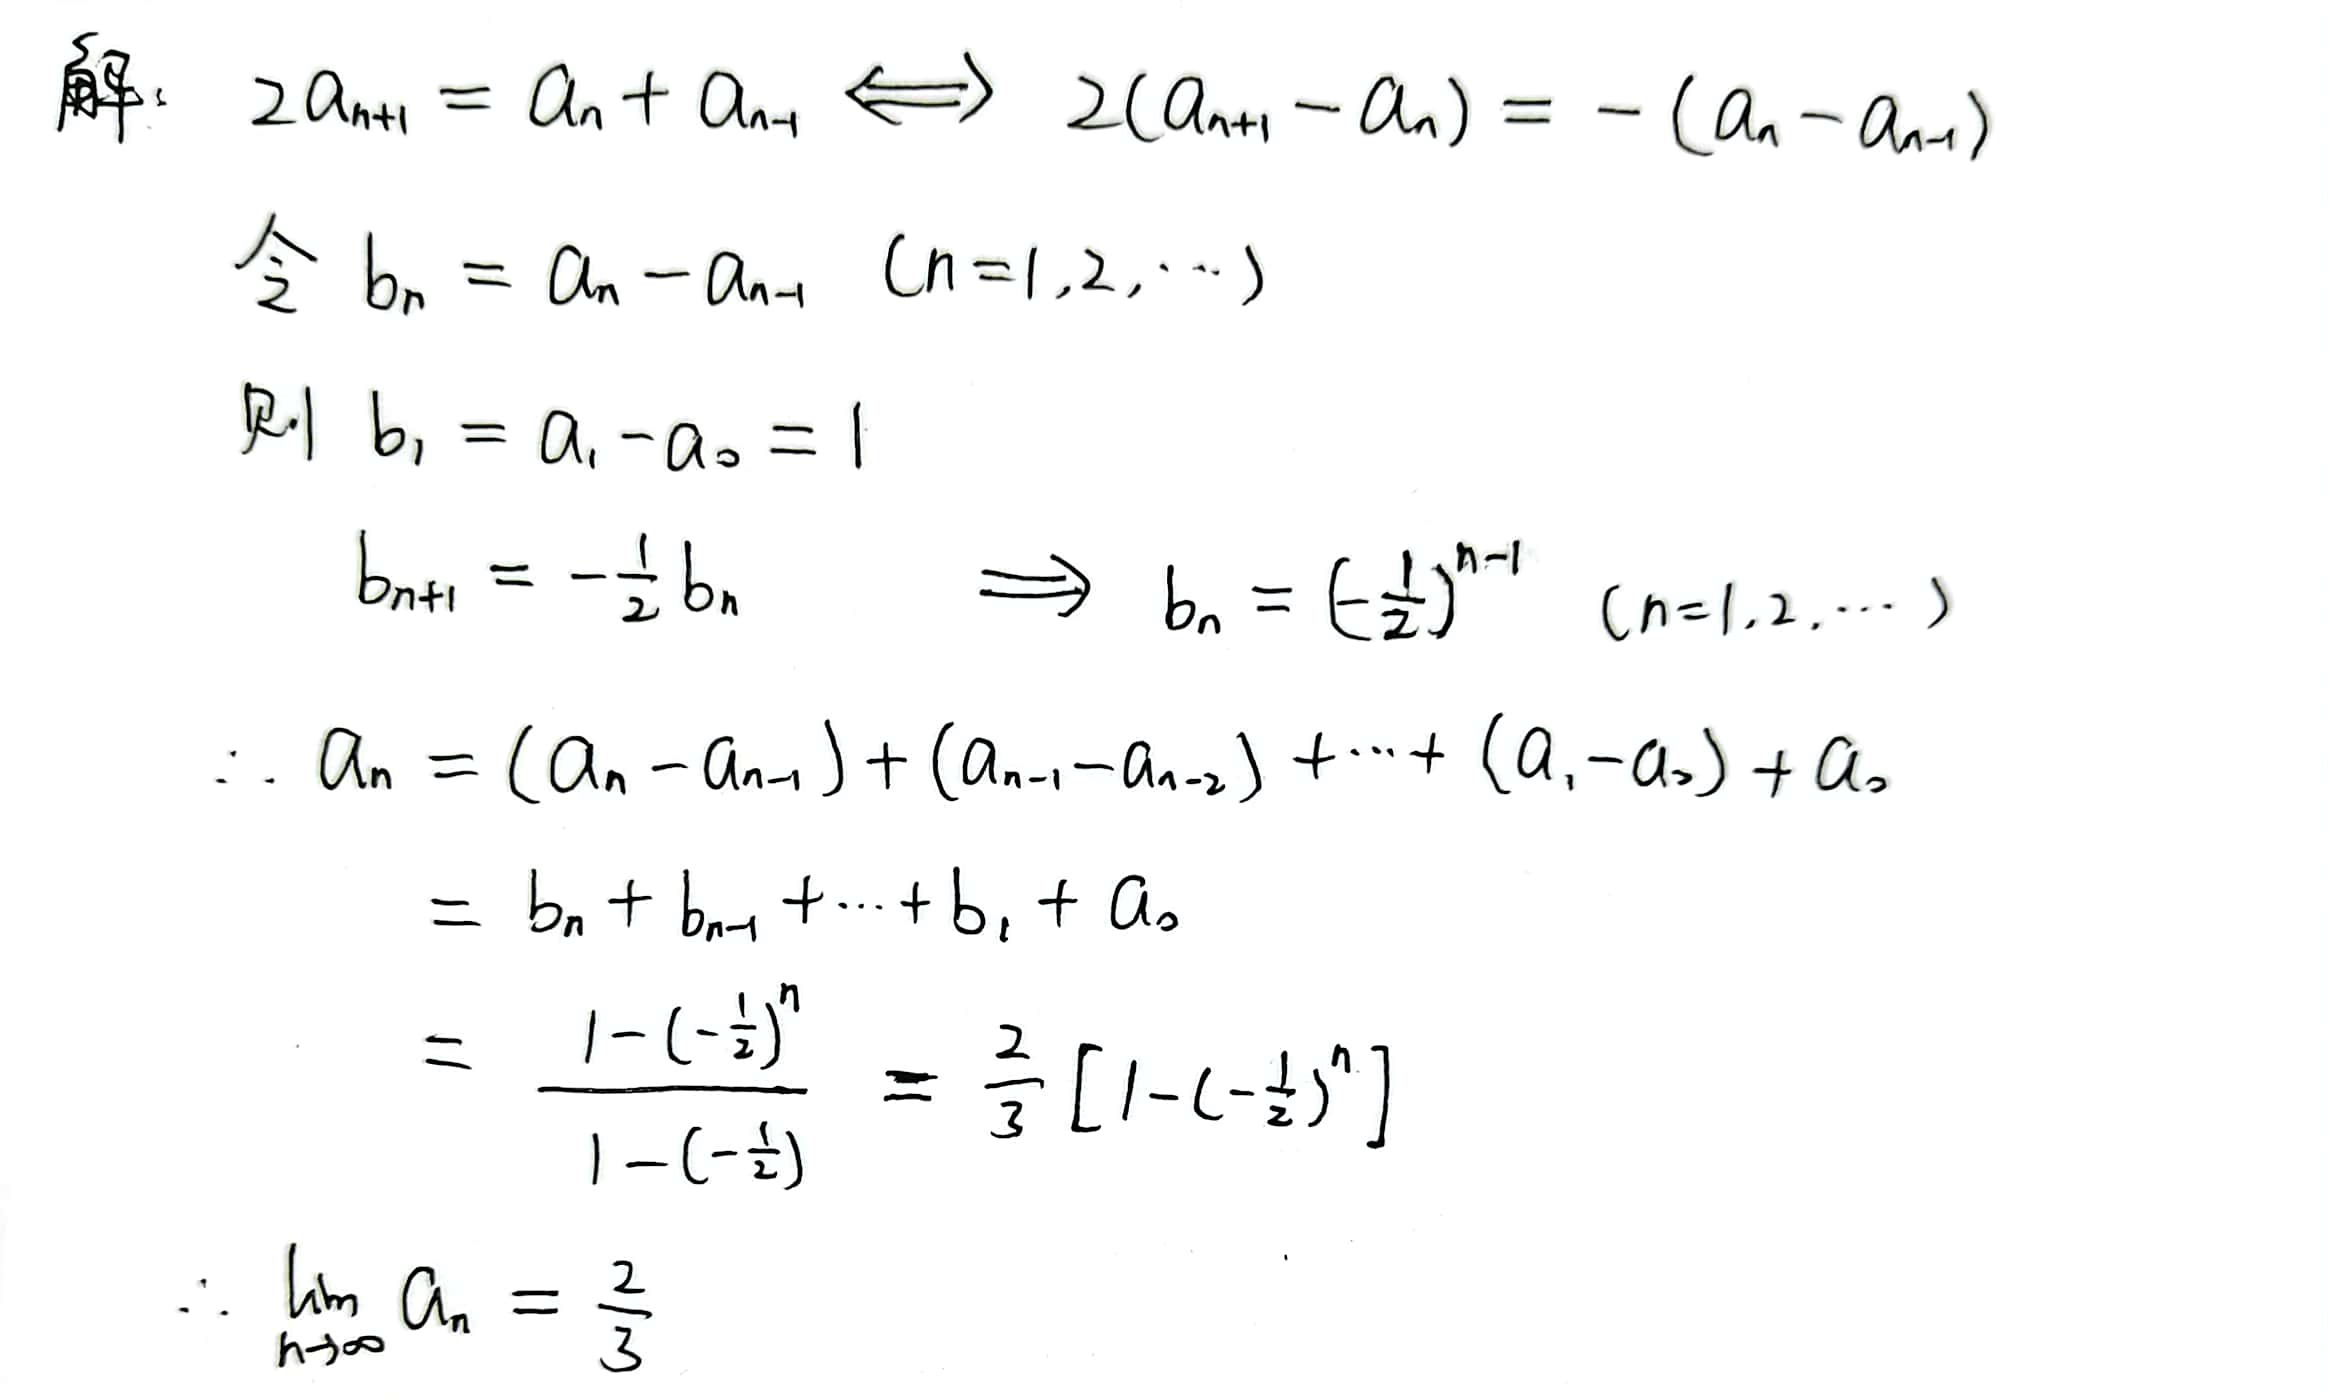 解: 2aₙ₊₁ = aₙ + aₙ₋₁ ⟺ 2(aₙ₊₁ - aₙ) = -(aₙ - aₙ₋₁)
令 bₙ = aₙ - aₙ₋₁ (n=1,2,···)
则 b₁ = a₁ - a₀ = 1
bₙ₊₁ = -1/2 bₙ ⟹ bₙ = (-1/2)ⁿ⁻¹ (n=1,2,···)
∴ aₙ = (aₙ - aₙ₋₁) + (aₙ₋₁ - aₙ₋₂) + ··· + (a₁ - a₀) + a₀
= bₙ + bₙ₋₁ + ··· + b₁ + a₀
= (1-(-1/2)ⁿ)/(1-(-1/2)) = 2/3 [1-(-1/2)ⁿ]
∴ lim n→∞ aₙ = 2/3